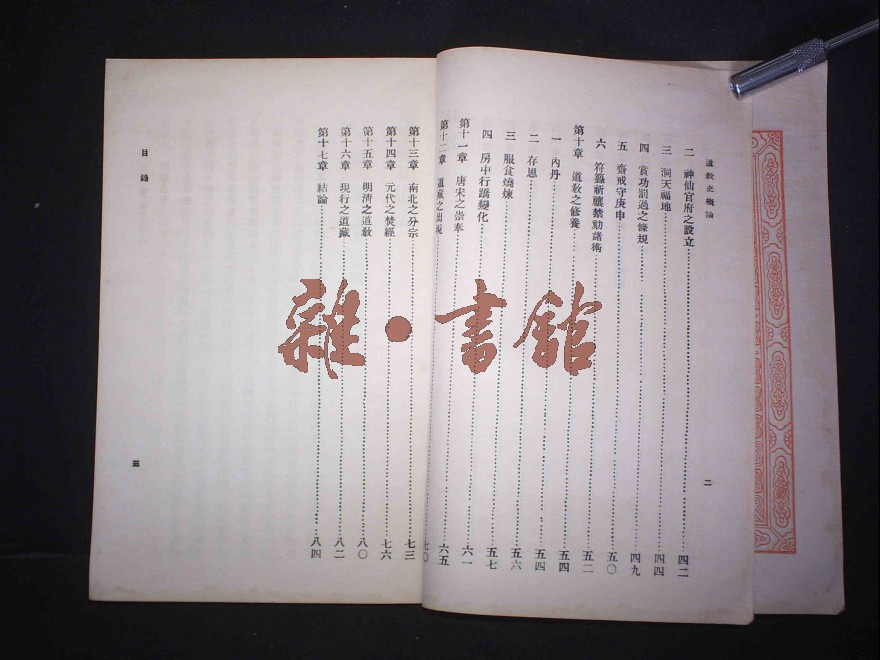 道敎史槪論
二 神仙官府之設立 四二
三 洞天福地 四四
四 賞功罰過之條規 四九
五 齋戒守庚申 五〇
六 符籙祈禳禁劾諸術 五二
第十章 道敎之修養 五四
一 內丹 五四
二 存思 五四
三 服食燒煉 五六
四 房中行蹻變化 五七
二
第十一章 唐宋之崇奉 六一
第十二章 道藏之出現 六五
第十三章 南北之分宗 七〇
第十四章 元代之焚經 七三
第十五章 明清之道敎 七六
第十六章 現行之道藏 八〇
第十七章 結論 八二
八四
目錄
三
雜·書館